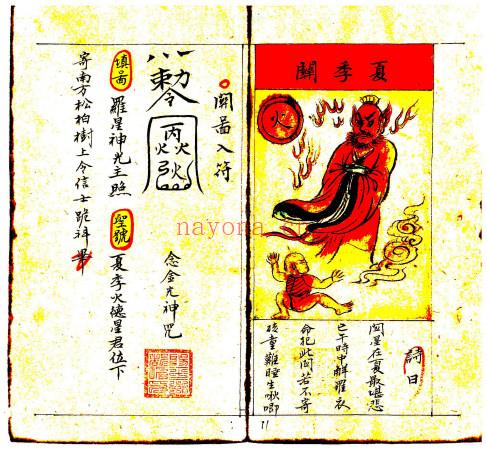 夏季關
火
詩曰
關星在夏最堪悲
巳午時中解羅衣
命犯此關若不寄
孩童難睡生啾唧
11
關啚入符
念金光神咒
勅令
丙火
聖號
夏季火德星君位下
填啚
羅星神光主照
寄南方松柏樹上令信士跪
nayona